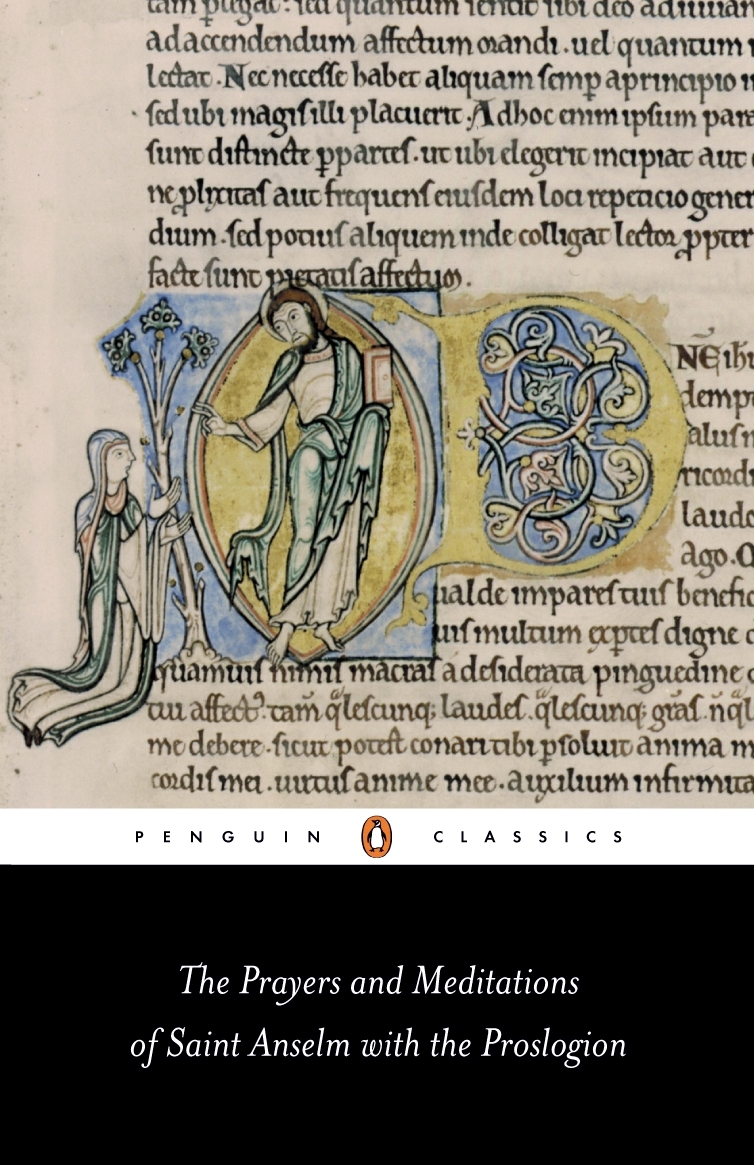 ad accendendum affectum orandi . uel quantum
lectat . Nec necesse habet aliquam semp a principio
sed ubi magis illi placuerit . Ad hoc enim ipsum
sunt distincte p partes . ut ubi elegerit incipiat aut
ne plixitas aut frequens eiusdem loci repeticio gener
dium . sed potius aliquem inde colligat lector ppter
facte sunt pietatis affectum .
NE
demp
ricordi
laud
ago . O
ualde impares tuis benefic
uis multum exptes digne
quamuis nimis macras a desiderata pinguedine
tui affect tam q̃lescunq; laudes . q̃lescunq; gr̃as .
me debere . sicut potest conari tibi psoluit anima m
cordis mei . uirtus anime mee . auxilium infirmita
PENGUIN CLASSICS
The Prayers and Meditations
of Saint Anselm with the Proslogion